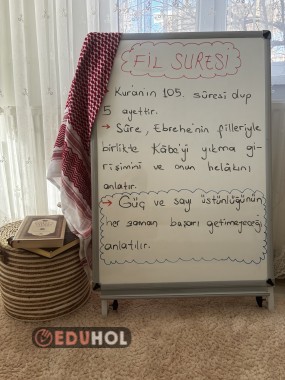 FİL SURESİ
→ Kuranın 105. sûresi olup
5 ayettir.
→ Sûre, Ebrehe'nin filleriyle
birlikte Kâbe'yi yıkma gi-
rişimini ve onun helâkını
anlatır.
→ Güç ve sayı üstünlüğünün
her zaman başarı getirmeyeceği
anlatılır.
EDUHOL